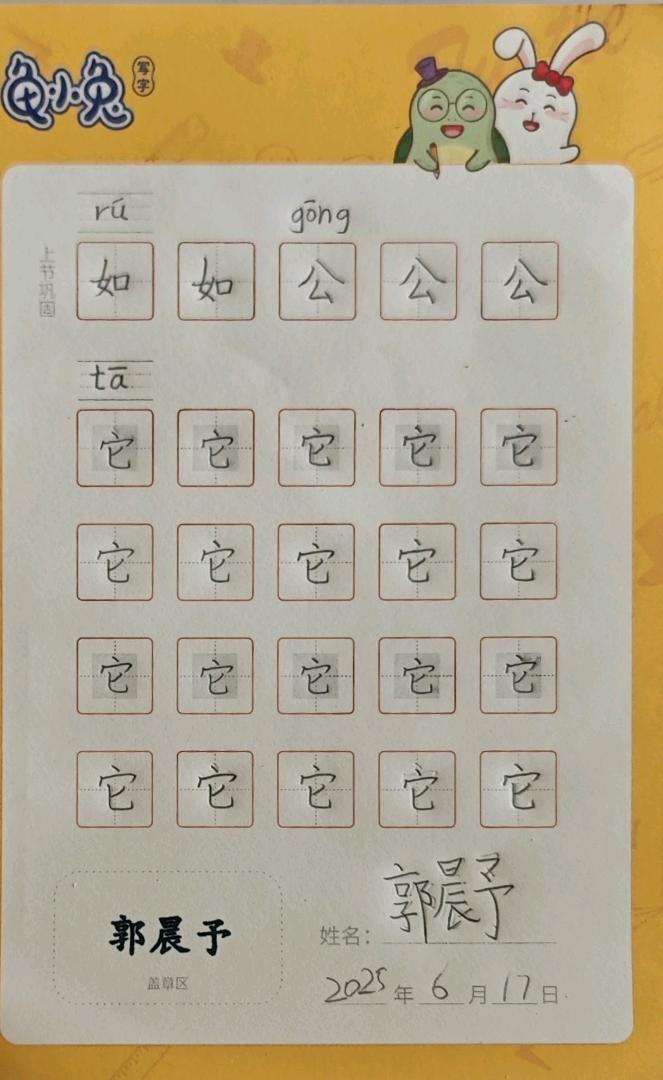 龟小兔 写字
rú gōng
上节巩固
如 如 公 公 公
tā
它 它 它 它 它
它 它 它 它 它
它 它 它 它 它
它 它 它 它 它
郭晨予
盖章区
姓名: 郭晨予
2025 年 6 月 17 日